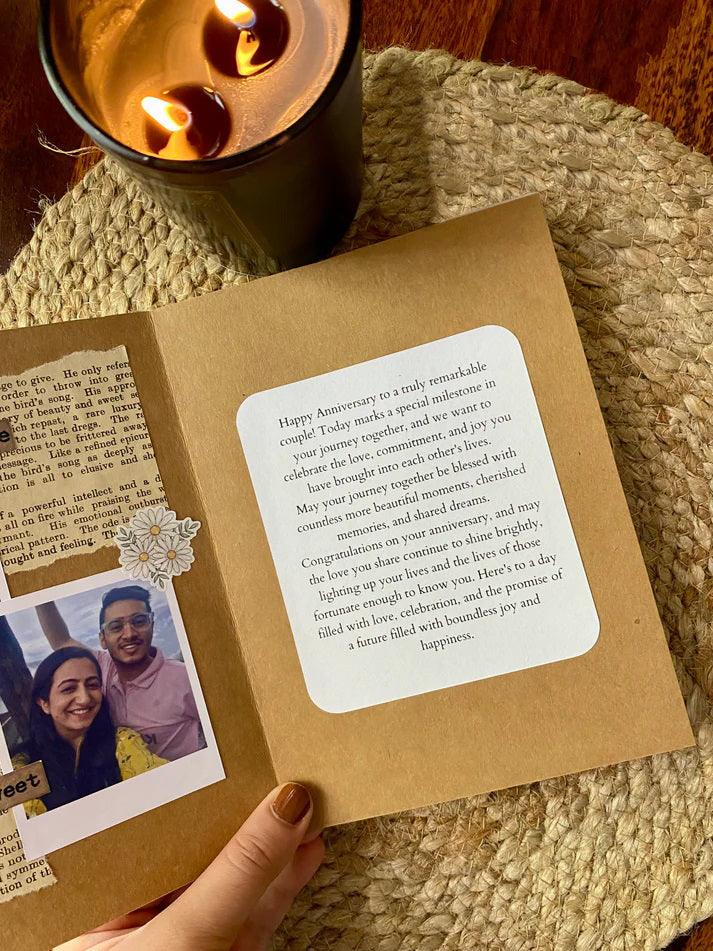 ge to give. He only
order to throw into
e bird's song. His
ry of beauty and sweet
ich repast, a rare luxury
to the last dregs. The
precious to be frittered away
essage. Like a refined
the bird's song as deeply as
tion is all to elusive and
f a powerful intellect and a
all on fire while praising the
rmant. His emotional
rical pattern. The ode is
ought and feeling.
e
eet
not
symme
tion of
Happy Anniversary to a truly remarkable
couple! Today marks a special milestone in
your journey together, and we want to
celebrate the love, commitment, and joy you
have brought into each other's lives.
May your journey together be blessed with
countless more beautiful moments, cherished
memories, and shared dreams.
Congratulations on your anniversary, and may
the love you share continue to shine brightly,
lighting up your lives and the lives of those
fortunate enough to know you. Here's to a day
filled with love, celebration, and the promise of
a future filled with boundless joy and
happiness.